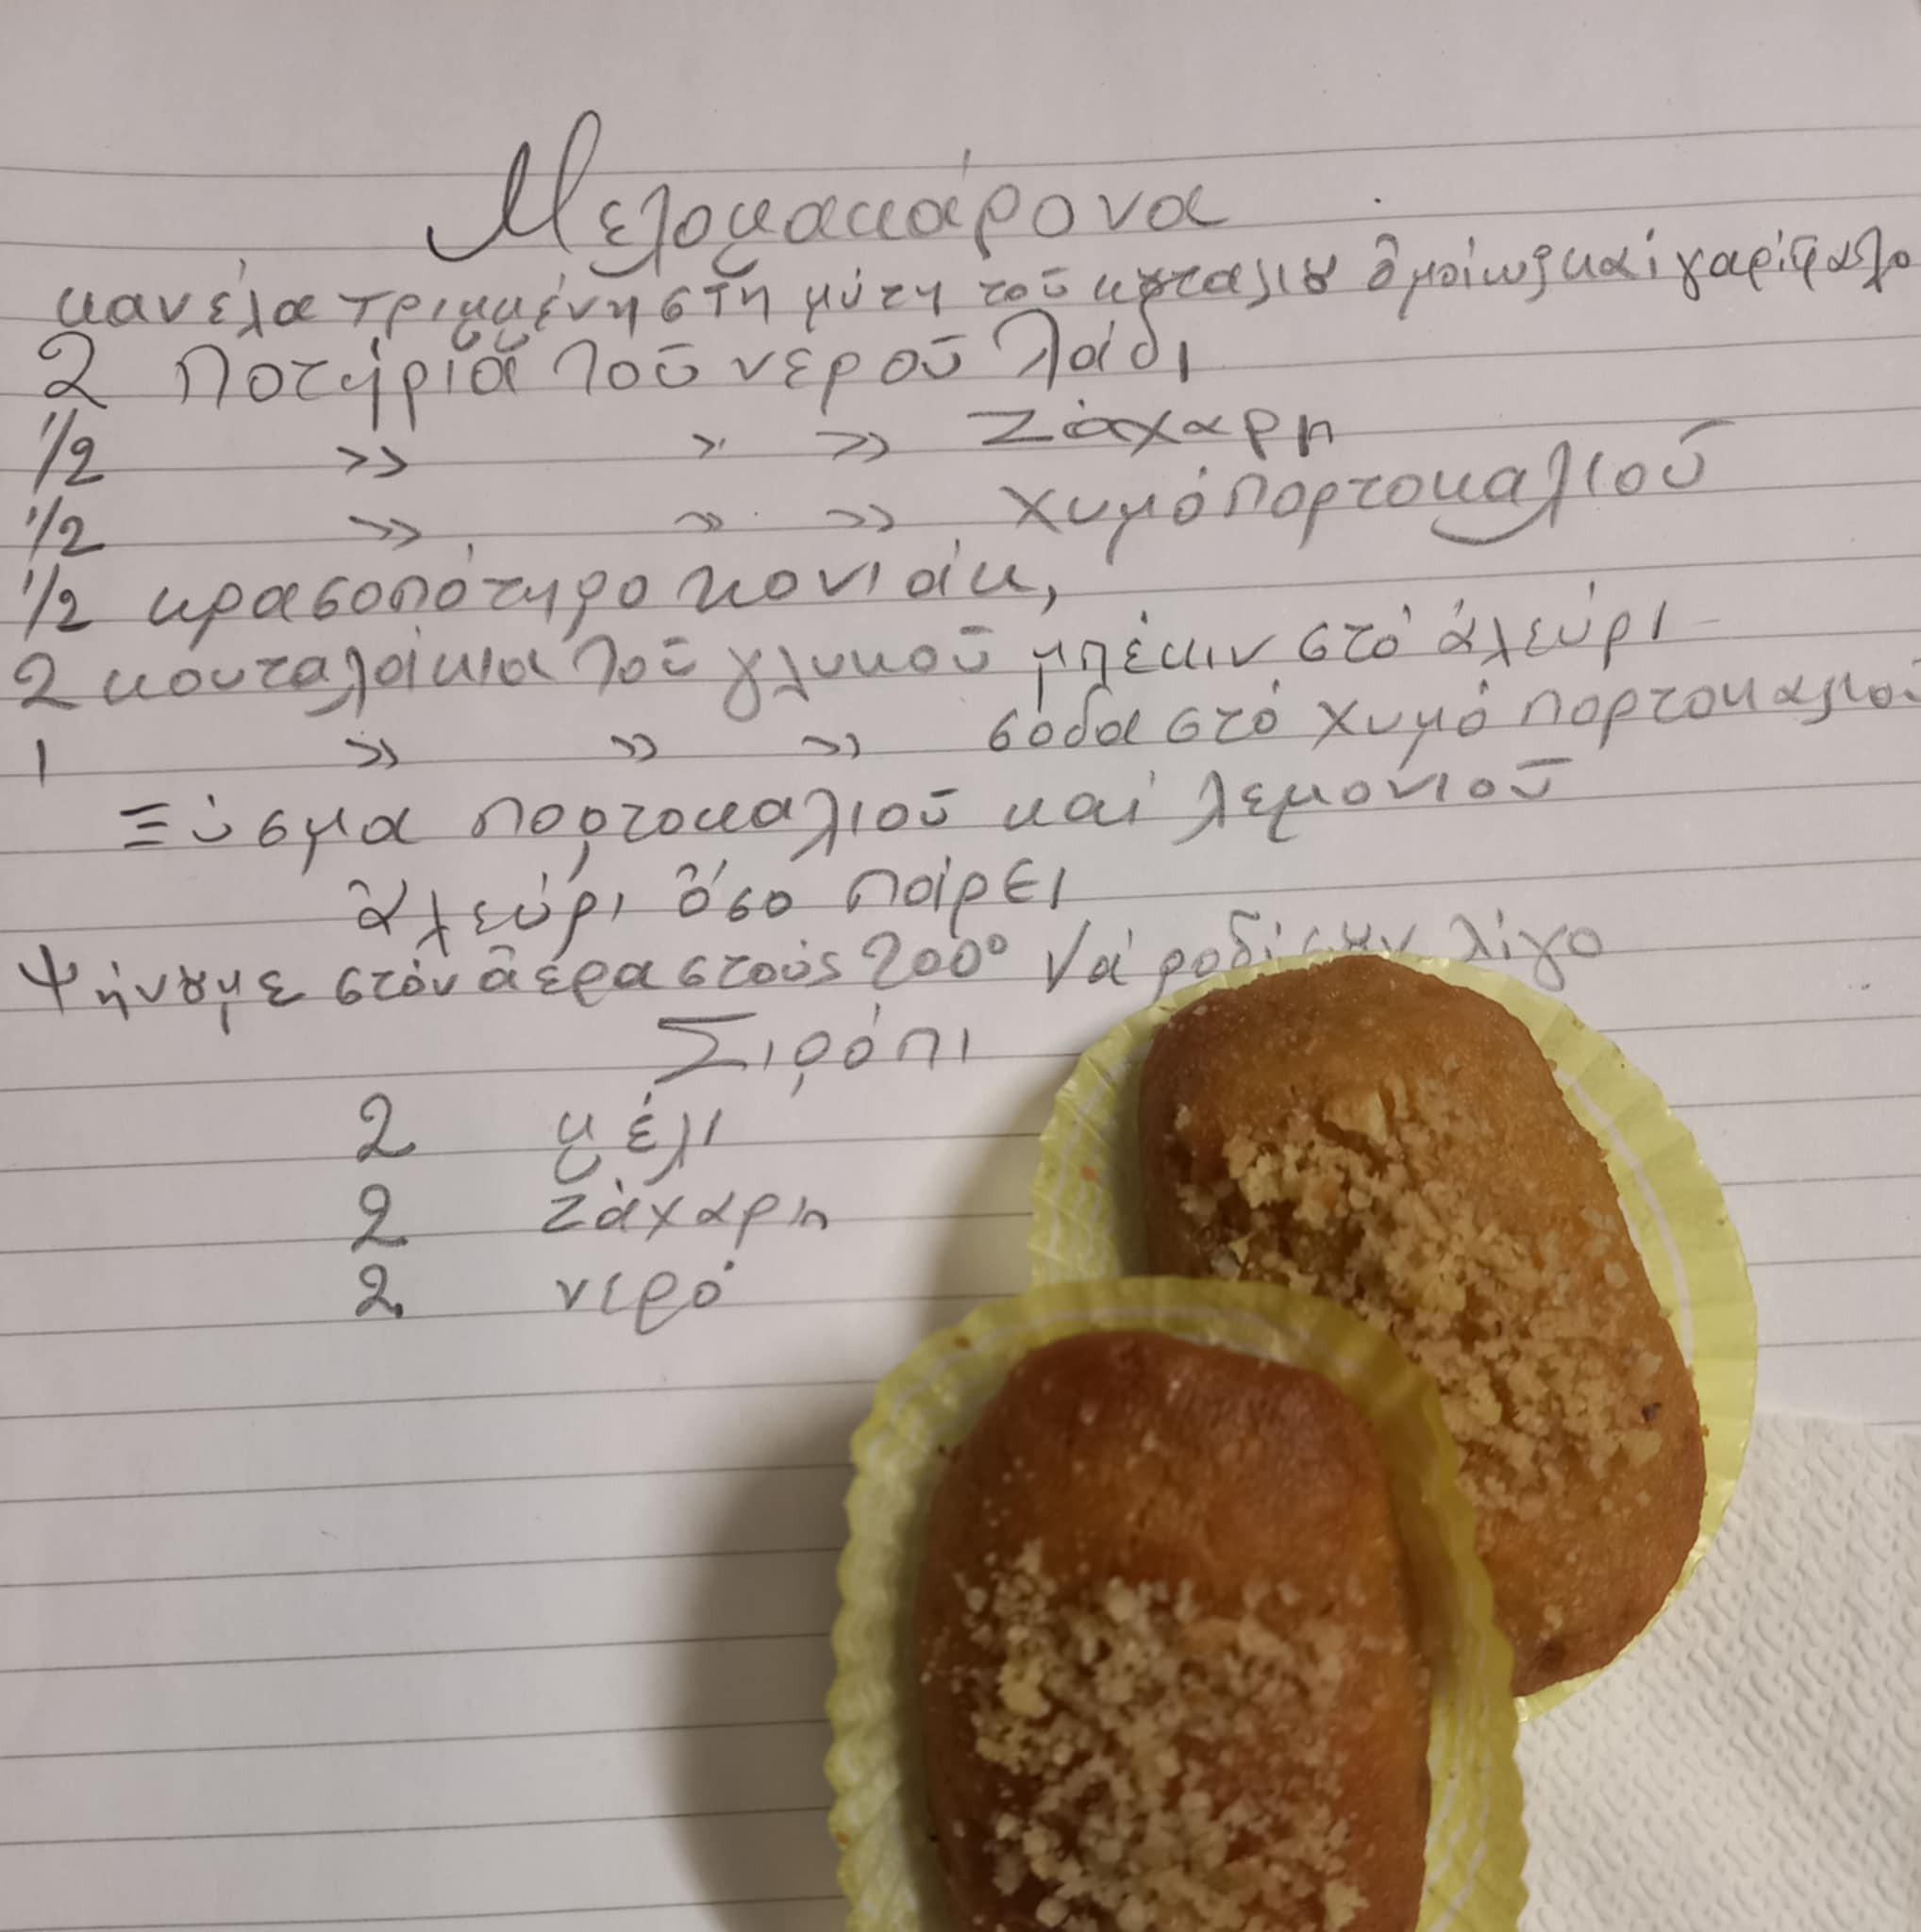 Μελομακάρονα
κανέλα τριμμένη στη μύτη τοῦ κȣταλιȣ ὁμοίως καί γαρίφαλο
2 Ποτήρια τοῦ νεροῦ λάδι
1/2 >> >> >> Ζάχαρη
1/2 >> >> >> χυμό πορτοκαλιοῦ
1/2 κρασοπότηρο κονιάκ,
2 κουταλάκια τοῦ γλυκοῦ μπέκιν στό ἀλεύρι
1 >> >> >> σόδα στό χυμό πορτοκαλιοῦ
Ξύσμα πορτοκαλιοῦ καί λεμονιοῦ
ἀλεύρι ὅσο πάρει
Ψήνȣμε στόν ἀέρα στούς 200° Νά λίγο
Σιρόπι
2 μέλι
2 Ζάχαρη
2 νερό